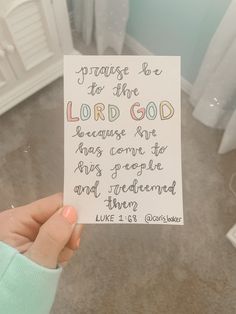 praise be
to the
LORD GOD
because he
has come to
his people
and redeemed
them
LUKE 1:68 @caris_baker